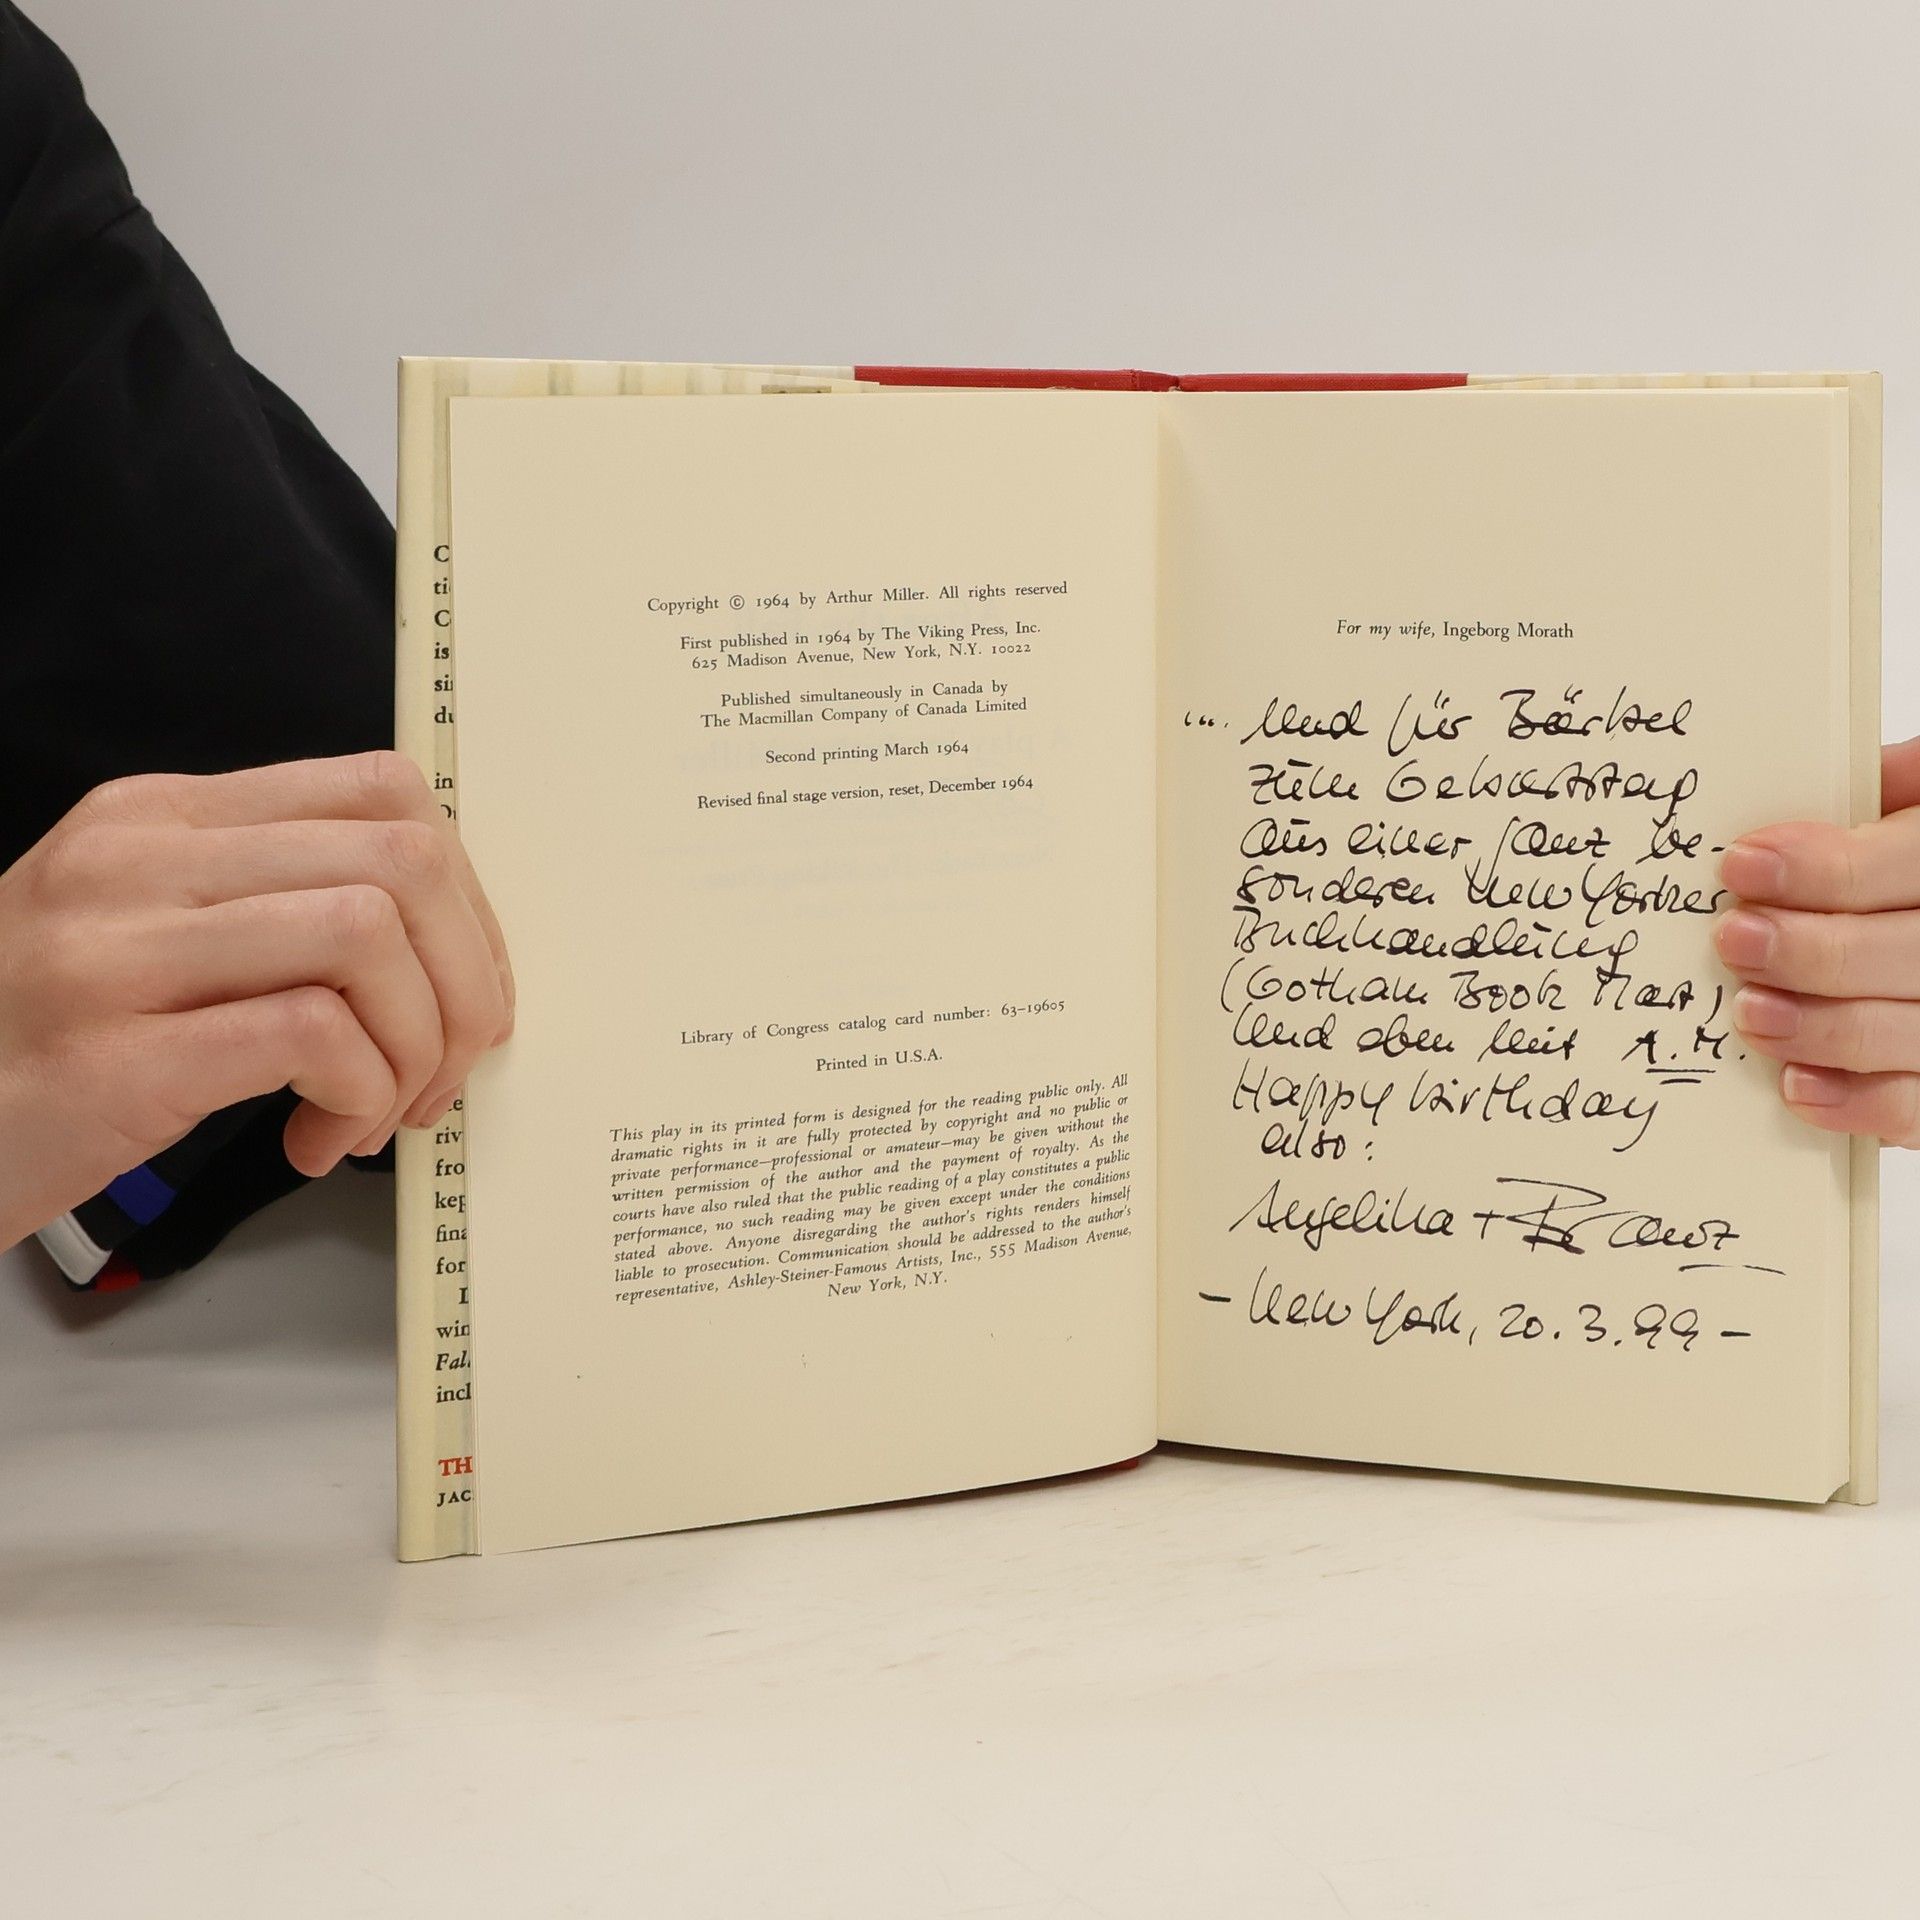 C
ti
C
is
si
du
in
riv
fro
kep
fina
for
win
Fal
incl
TH
JAC
Copyright © 1964 by Arthur Miller. All rights reserved
First published in 1964 by The Viking Press, Inc.
625 Madison Avenue, New York, N.Y. 10022
Published simultaneously in Canada by
The Macmillan Company of Canada Limited
Second printing March 1964
Revised final stage version, reset, December 1964
Library of Congress catalog card number: 63–19605
Printed in U.S.A.
This play in its printed form is designed for the reading public only. All
dramatic rights in it are fully protected by copyright and no public or
private performance—professional or amateur—may be given without the
written permission of the author and the payment of royalty. As the
courts have also ruled that the public reading of a play constitutes a public
performance, no such reading may be given except under the conditions
stated above. Anyone disregarding the author's rights renders himself
liable to prosecution. Communication should be addressed to the author's
representative, Ashley-Steiner-Famous Artists, Inc., 555 Madison Avenue,
New York, N.Y.
For my wife, Ingeborg Morath
.... Und für
zum Geburtstag
aus einer ganz be-
sonderen New Yorker
Buchhandlung
(Gotham Book Mart)
und eben mit A.M.
Happy birthday
also:
Angelika +
– New York, 20.3.99 –